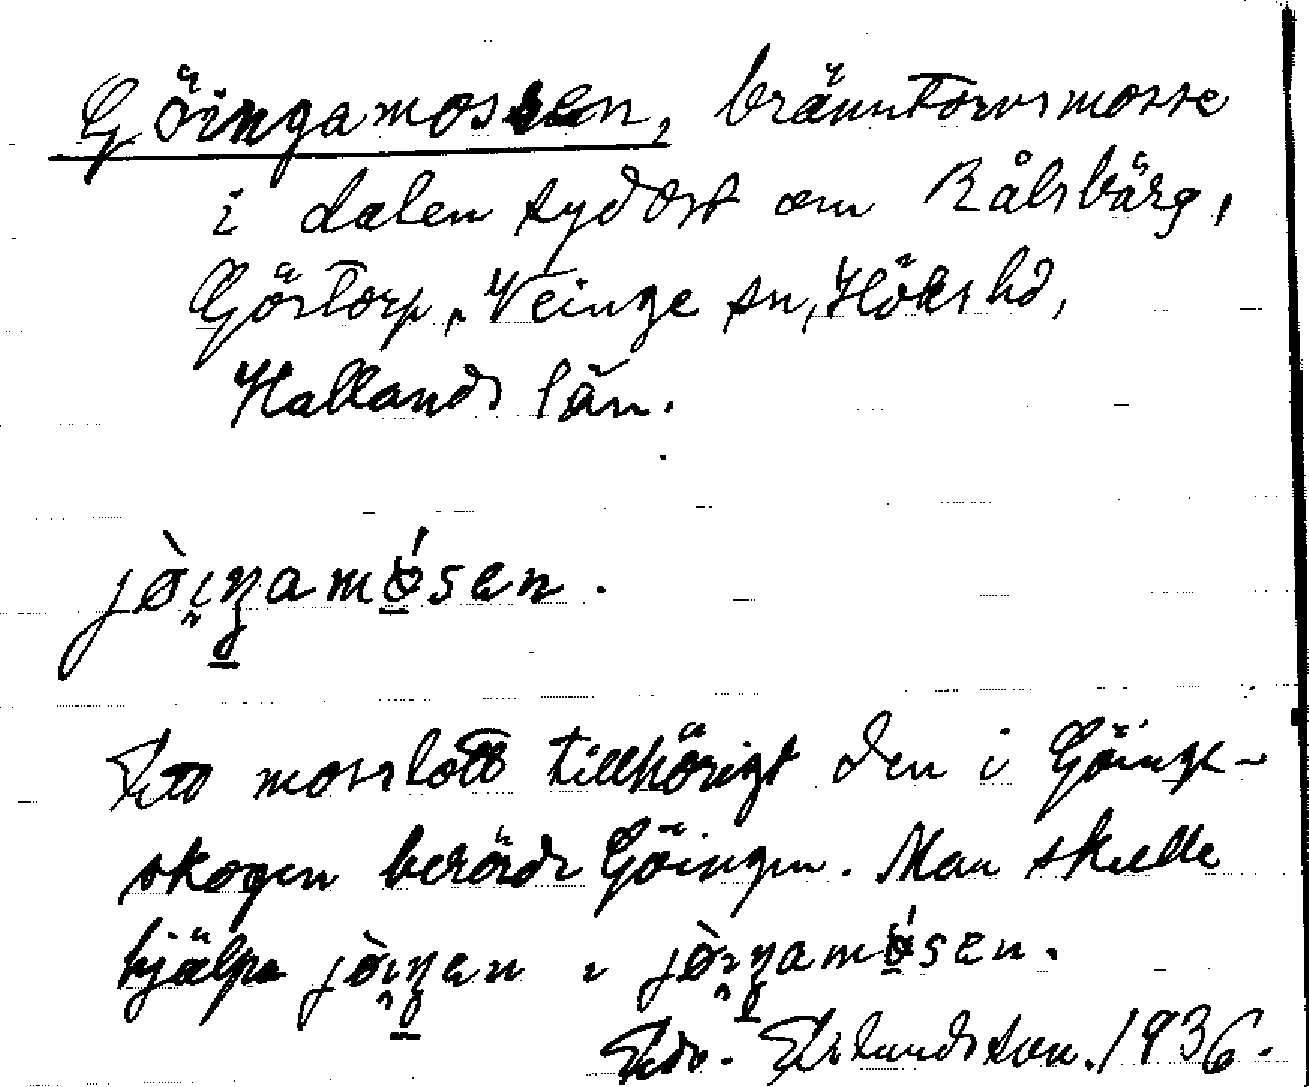 Göingamossen, bränntorvsmosse
i dalen sydöst om Bålsbärg,
Göstorp, Veinge sn, Höks hd,
Hallands län.
jò̤i̯ŋamó̤sen.
Ett mosslott tillhörigt den i Göinge-
skogen berörde Göingen. Man skulle
hjälpa jòi̯ŋen i jòi̯ŋamó̤sen.
Edv. Erlandsson. 1936.